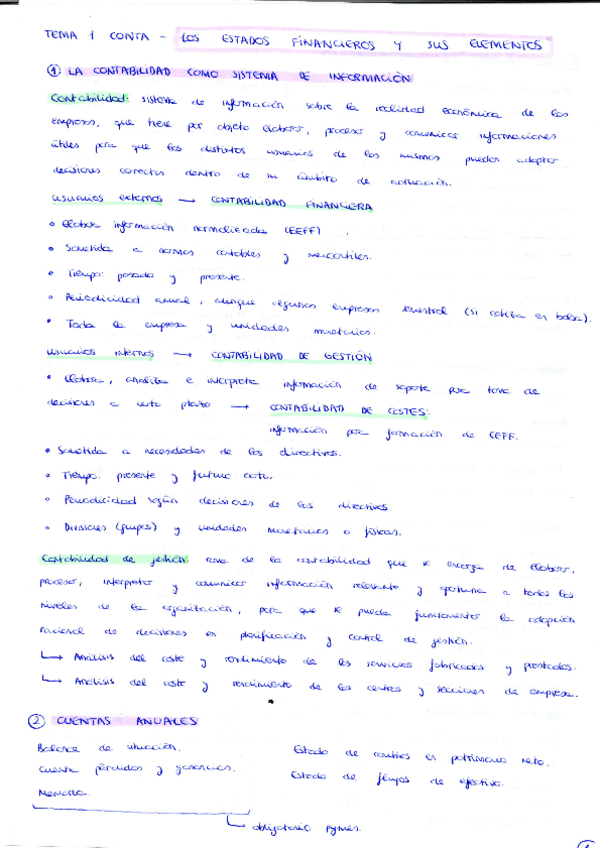 TEMA 1 CONTA - LOS ESTADOS FINANCIEROS Y SUS ELEMENTOS
① LA CONTABILIDAD COMO SISTEMA DE INFORMACIÓN
Contabilidad: sistema de información sobre la realidad económica de las
empresas, que tiene por objeto elaborar, procesar y comunicar informaciones
útiles para que los distintos usuarios de las mismas puedan adoptar
decisiones correctas dentro de su ámbito de actuación.
usuarios externos → CONTABILIDAD FINANCIERA
• Elabora información normalizada (EEFF).
• Sometida a normas contables y mercantiles.
• Tiempo: pasado y presente.
• Periodicidad anual, aunque algunas empresas semestral (si cotiza en bolsa).
• Toda la empresa y unidades monetarias.
usuarios internos → CONTABILIDAD DE GESTIÓN
• Elabora, analiza e interpreta información de soporte para toma de
decisiones a corto plazo → CONTABILIDAD DE COSTES:
información para formación de EEFF.
• Sometida a necesidades de los directivos.
• Tiempo: presente y futuro corto.
• Periodicidad según decisiones de los directivos
• Divisiones (grupos) y unidades monetarias o físicas.
Contabilidad de gestión: rama de la contabilidad que se encarga de elaborar,
procesar, interpretar y comunicar información relevante y oportuna a todos los
niveles de la organización, para que se pueda fundamentar la adopción
racional de decisiones en planificación y control de gestión.
↳ Análisis del coste y rendimiento de los servicios fabricados y prestados.
↳ Análisis del coste y rendimiento de los centros y secciones de empresa.
② CUENTAS ANUALES
Balance de situación.
Cuenta pérdidas y ganancias.
Memoria.
Estado de cambios en patrimonio neto.
Estado de flujos de efectivo.
↳ obligatorio Pymes.